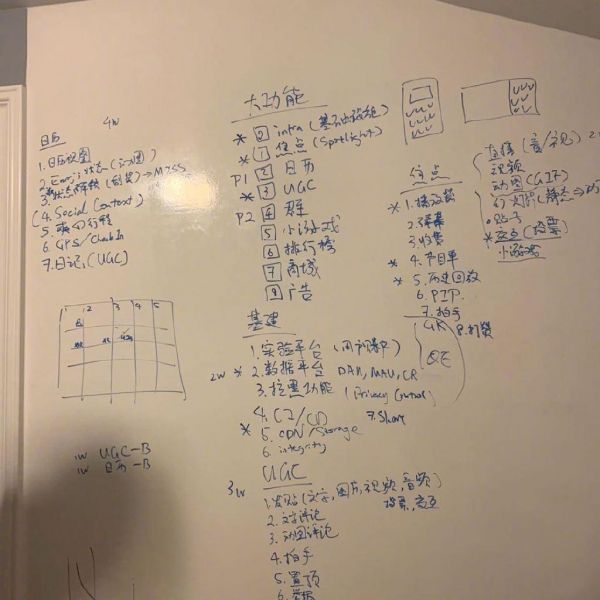 日历
4w
1. 日历视图
2. Emoji 状态 (动图)
(4. Social Context)
5. 行程
6. GPS/Check In
7. 日记 (UGC)
1 2 3 4 5
1w UGC-B
1w 日历-B
大功能
* 0 infra (基础设施组)
* 1 焦点 (Spotlight)
P1 2 日历
* 3 UGC
P2 4 群
5 小游戏
6 排行榜
7 商城
9 广告
基建
1. 实验平台
2w * 2. 数据平台 DAU, MAU, CR
3. 拉黑功能 (Privacy Control)
4. CI/CD
7. Share
* 5. CDN/Storage
6. integrity
UGC
3w
1. 发贴 (文字, 图片, 视频, 音频)
投票, 交互
2. 文字评论
3. 动图评论
4. 拍手
5. 置顶
6. 举报
焦点
* 1. 播放器
2. 弹幕
3. 收费
* 4. 节目单
* 5. 历史回放
6. PIP
7. 拍手
8. 打赏
QE
直播 (音/视)
视频
动图 (GIF)
幻灯片
贴子
* 交互 (投票)
小游戏